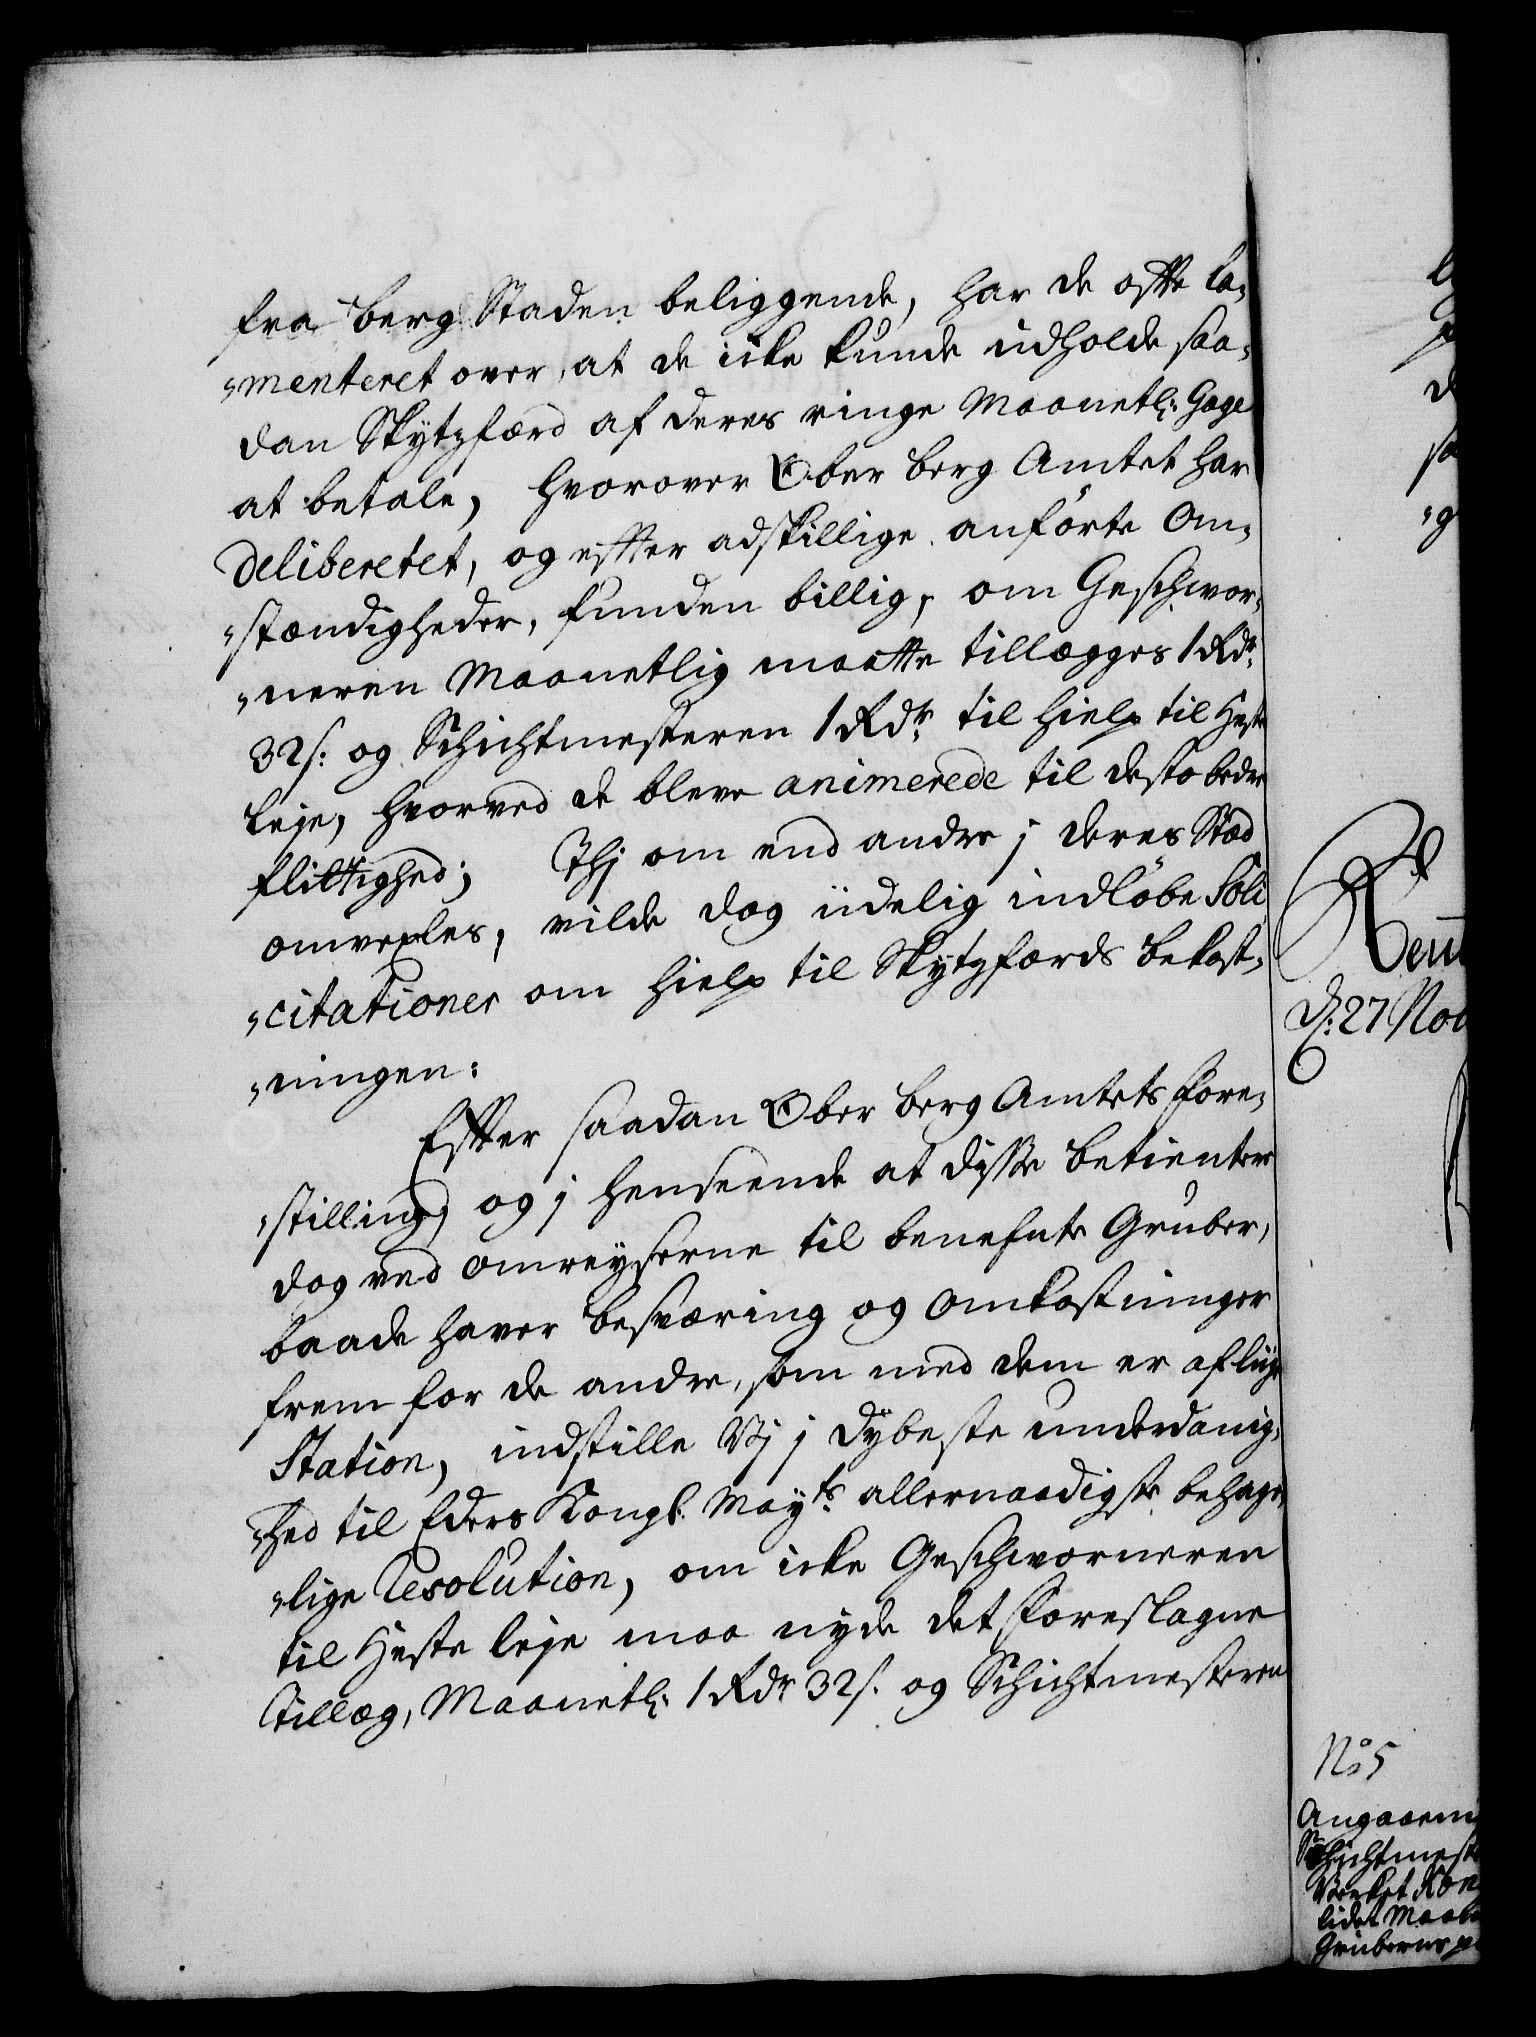 fra Berg Staden beliggende, har de offte la-
"menteret over, at de icke kunde udholde saa-
dan Skytzfærd af deres ringe Maanetl: Gage
at betale, hvorover Ober Berg Amtet har
delibereret, og effter adskillige anførte Om-
"stændigheder, funden billig, om Geschwor-
"neren Maanetlig maatte tillægges 1 Rdr
32 s: og Schichtmesteren 1 Rdr til hielp til Heste
leje, hvorved de bleve animerede til desto bedre
flittighed; Thj om end andre j deres Stæd
omvexles, vilde dog idelig indløbe Soli
"citationer om hielp til Skytzfærds bekost-
"ningen:
Effter saadan Ober Berg Amtets fore-
"stilling, og j henseende at disse betientere
dog ved omreyserne til benefnte Gruber,
baade haver besværing og omkostninger
frem for de andre, som med dem er af liige
Station, indstille Vj j dybeste underdanig-
"hed til Eders Kongl: Mayts allernaadigste behage-
"lige Resolution, om icke Geschworneren
til Heste leje maa nyde det foreslagne
Tillæg, Maanetl: 1 Rdr 32 s. og Schichtmesteren
d: 27 Nov
No 5
Angaaen
Schichtmest
Verket Kon
lidet
Gruberne